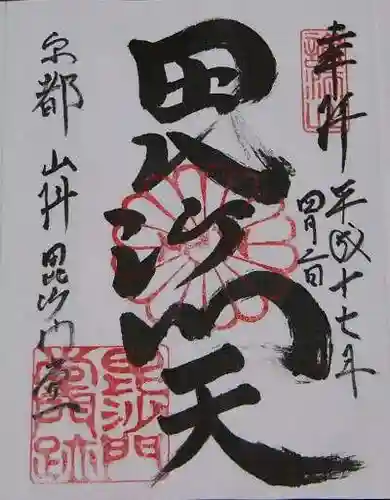 奉拝
平成十七年
四月二日
毘沙門天
京都 山科 毘沙門堂
毘沙門
堂門跡